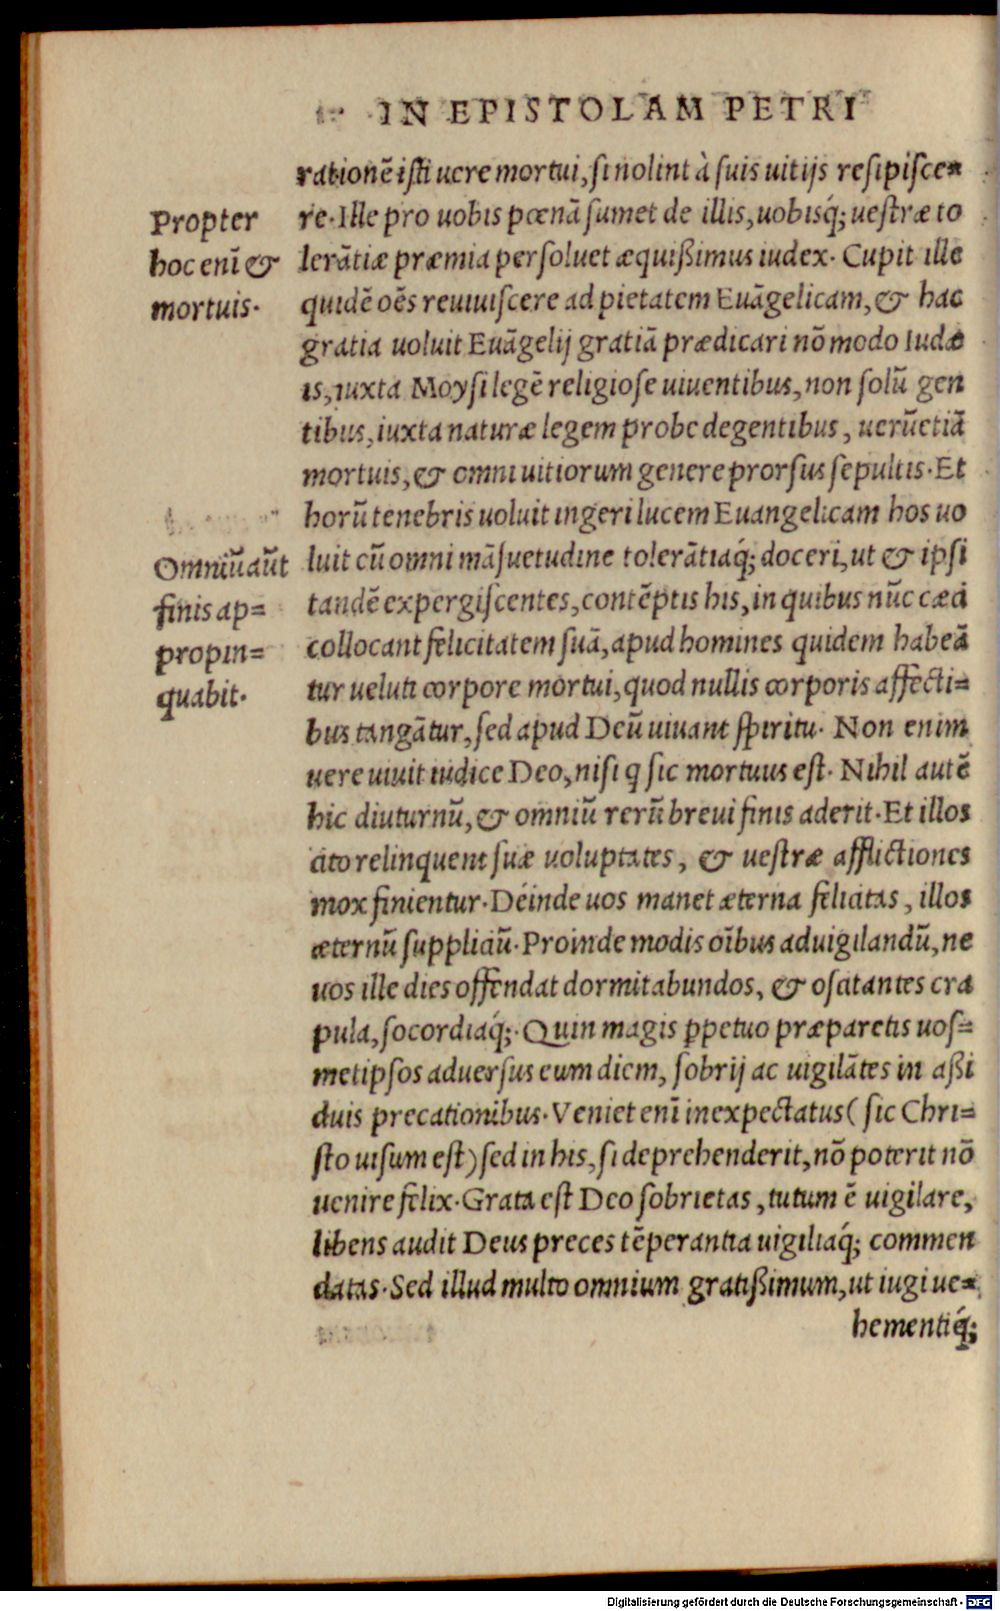 IN EPISTOLAM PETRI
rationē isti uere mortui, si nolint à suis uitijs resipiscen
re. Ille pro uobis pœnā sumet de illis, uobisq́; uestræ to
lerātiæ præmia persoluet æquißimus iudex. Cupit ille
quidē oēs reuiuiscere ad pietatem Euāgelicam, & hac
gratia uoluit Euāgelij gratiā prædicari nō modo Iudæ
is, iuxta Moysi legē religiose uiuentibus, non solū gen
tibus, iuxta naturæ legem probe degentibus, uerū etiā
mortuis, & omni uitiorum genere prorsus sepultis. Et
horū tenebris uoluit ingeri lucem Euangelicam hos uo
luit cū omni māsuetudine tolerātiaq́; doceri, ut & ipsi
tandē expergiscentes, contēptis his, in quibus nūc cæci
collocant felicitatem suā, apud homines quidem habeā
tur ueluti corpore mortui, quod nullis corporis affecti=
bus tangātur, sed apud Deū uiuant spiritu. Non enim
uere uiuit iudice Deo, nisi q sic mortuus est. Nihil autē
hic diuturnū, & omniū rerū breui finis aderit. Et illos
cito relinquent suæ uoluptates, & uestræ afflictiones
mox finientur. Deinde uos manet æterna felicitas, illos
æternū suppliciū. Proinde modis oībus aduigilandū, ne
uos ille dies offendat dormitabundos, & oscitantes cra
pula, socordiaq́;. Quin magis ꝑpetuo præparetis uos=
metipsos aduersus eum diem, sobrij ac uigilātes in aßi
duis precationibus. Veniet enī inexpectatus (sic Chri=
sto uisum est) sed in his, si deprehenderit, nō poterit nō
uenire felix. Grata est Deo sobrietas, tutum ē uigilare,
libens audit Deus preces tēperantia uigiliaq́; commen
datas. Sed illud multo omnium gratißimum, ut iugi ue=
hementiq́;
Propter
hoc enī &
mortuis.
Omniū aūt
finis ap=
propin=
quabit.
Digitalisierung gefördert durch die Deutsche Forschungsgemeinschaft - DFG